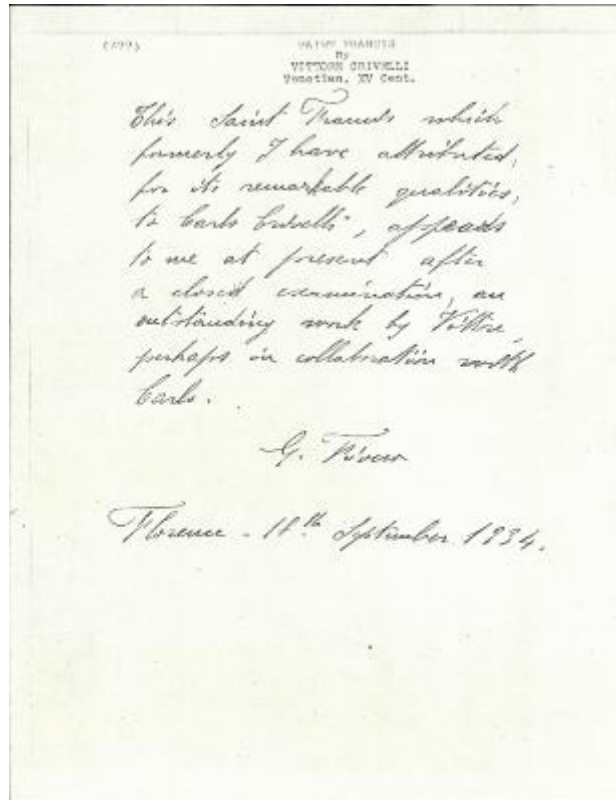 (499)
SAINT FRANCIS
By
VITTORE CRIVELLI
Venetian, XV Cent.
This Saint Francis which
formerly I have attributed,
for its remarkable qualities,
to Carlo Crivelli, appeads
to me at present after
a closed examination, an
outstanding work by Vittore,
perhaps in collabration with
Carlo.
G.
Florence - 18th September 1934.